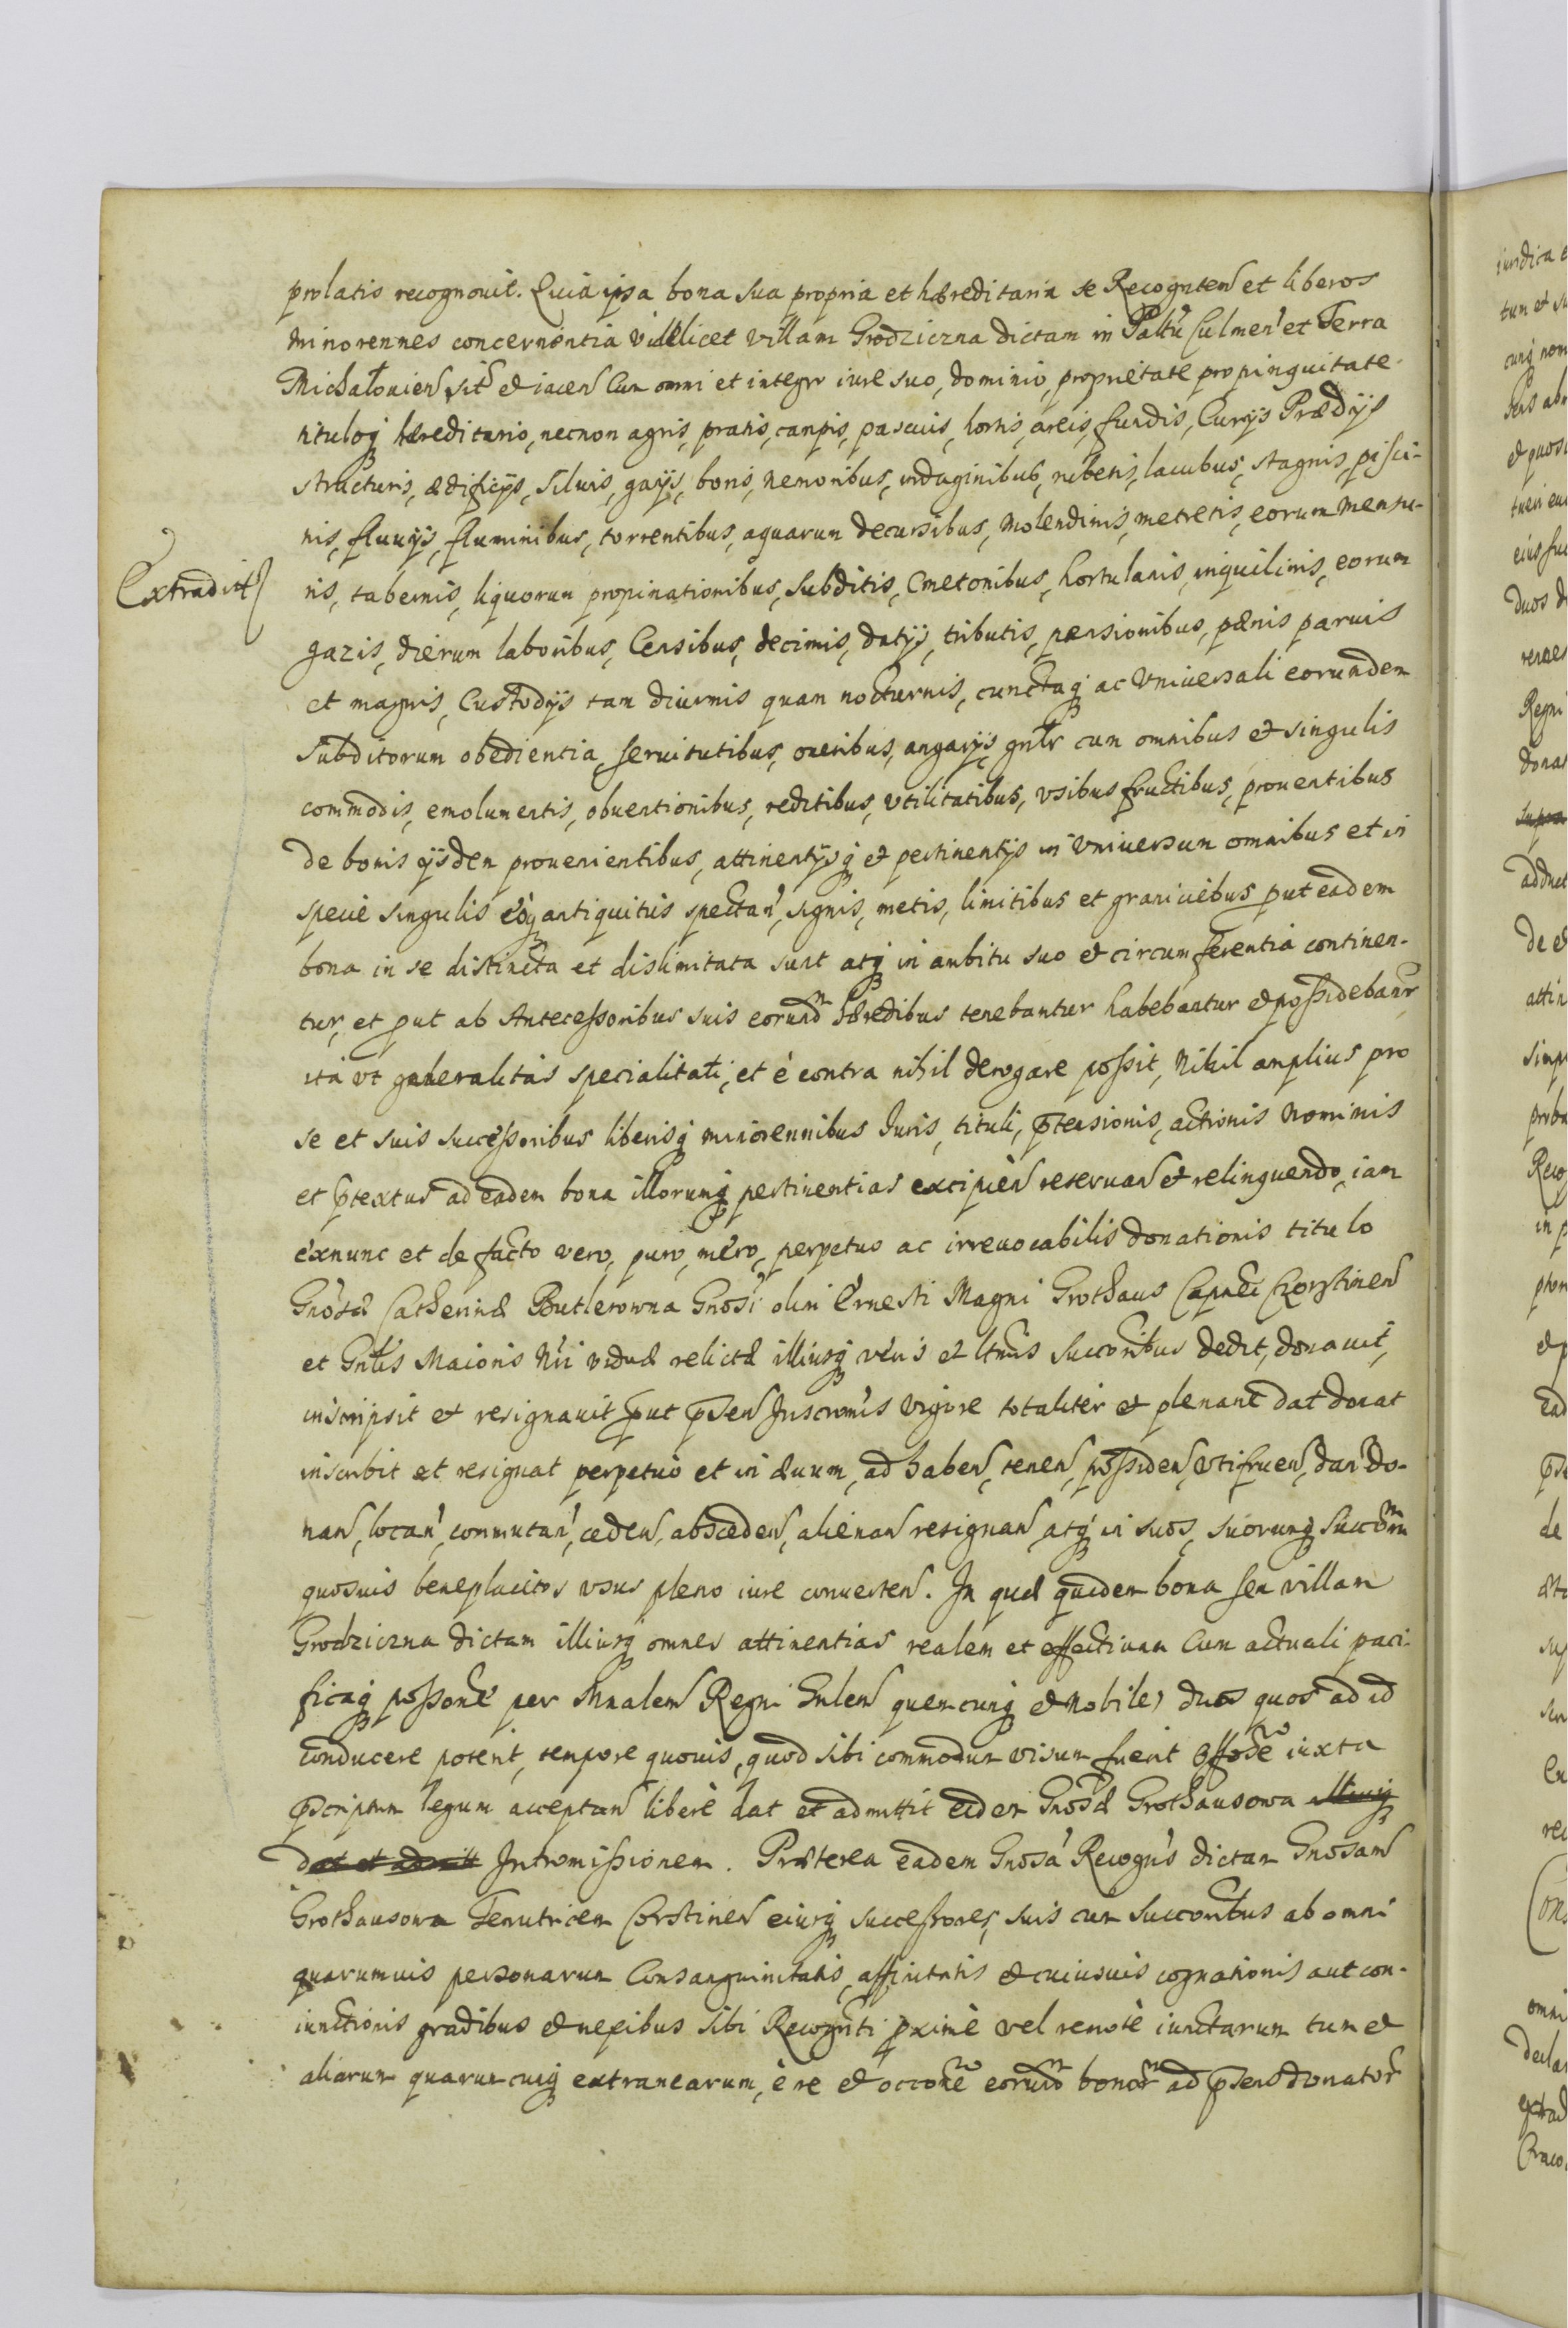 prolatis recognouit. Quia ipsa bona sua propria et hæreditaria se Recognten et liberos
minorennes concernentia videlicet villam Grodziczna dictam in Pałtu Culmen et Terra
Michałouien sit et iacen Cum omni et integro iure suo, dominio, proprietate propinquitate
tituloq hæreditario, necnon agris, pratis, campis, pascuis, hortis, areis, fundis, Curijs Prædijs
structuris, ædificijs, siluis, gaijs, boris, nemoribus, indaginibus, rubetis, lacubus, stagnis, pisci-
nis, fluuijs, fluminibus, torrentibus, aquarum decursibus, molendinis, metretis, eorum mensu-
Extradit
ris, tabernis, liquorum propinationibus, subditis, Cmetonibus, hortulanis, inquilinis, eorum
gazis, dierum laboribus, Censibus, decimis, datijs, tributis, pensionibus, pænis paruis
et magnis, Custodijs tam diurnis quam nocturnis, cunctaq ac vniuersali eorundem
subditorum obedientia, seruitutibus, oneribus, angarijs, gnltr cum omnibus et singulis
commodis, emolumentis, obuentionibus, reditibus, vtilitatibus, vsibus fructibus, prouentibus
de bonis ijsdem prouenientibus, attinentijsq et pertinentijs in vniuersum omnibus et in
specie singulis eoq antiquitus spectan, signis, metis, limitibus et graniciebus put eadem
bona in se distincta et dislimitata sunt atq in ambitu suo et circumferentia continen-
tur, et put ab Antecessoribus suis eorundm hæredibus tenebantur habebantur et possidebantr
ita vt generalitas specialitati, et è contra nihil derogare possit, Nihil amplius pro
se et suis successoribus liberisq minorennibus Iuris, tituli, ptensionis, actionis nominis
et ptextus ad eadem bona illorumq pertinentias excipien reseruan et relinquendo, iam
exnunc et de facto vero, puro, mero, perpetuo ac irreuocabilis donationis titulo
Gnosæ Catherinæ Butlerowna Gnosi olim Ernesti Magni Grothaus Capnei Czorstinen
et Gnlis Maioris Nri viduæ relictæ illiusq veris et ltmis succoribus dedit, donauit,
inscripsit et resignauit put psen Inscronis vigore totaliter et plenarie dat donat
inscribit et resignat perpetuo et in æuum, ad haben, tenen, possiden, vtifruen, dan do-
nan, locan, commutan, ceden, absceden, alienan resignan, atq in suos, suorumq succorm
quosuis beneplacitos vsus pleno iure conuerten. In quæ quidem bona seu villam
Grodziczna dictam illiusq omnes attinentias realem et effectiuam Cum actuali paci-
ficaq possone per Mnalem Regni Gnlem quemcunq et nobiles duos quos ad id
conducere poterit, tempore quouis, quod sibi commodum visum fuerit offose iuxta
pscriptum legum acceptan liberè dat et admittit eidem Gnosæ Grothausowa illiusq
dat et admitt Intromissionem. Præterea eadem Gnosa Recogns dictam Gnosam
Grothausowa Tenutricem Corstinen eiusq successores, suis cum succoribus ab omni
quarumuis personarum Consanguinitatis, affinitatis et cuiusuis cognationis aut con-
iunctionis gradibus et nexibus sibi Recognti pximè vel remotè iunctarum tum et
aliarum quarumcunq extranearum, è re et occone eorund bonor ad psens donator